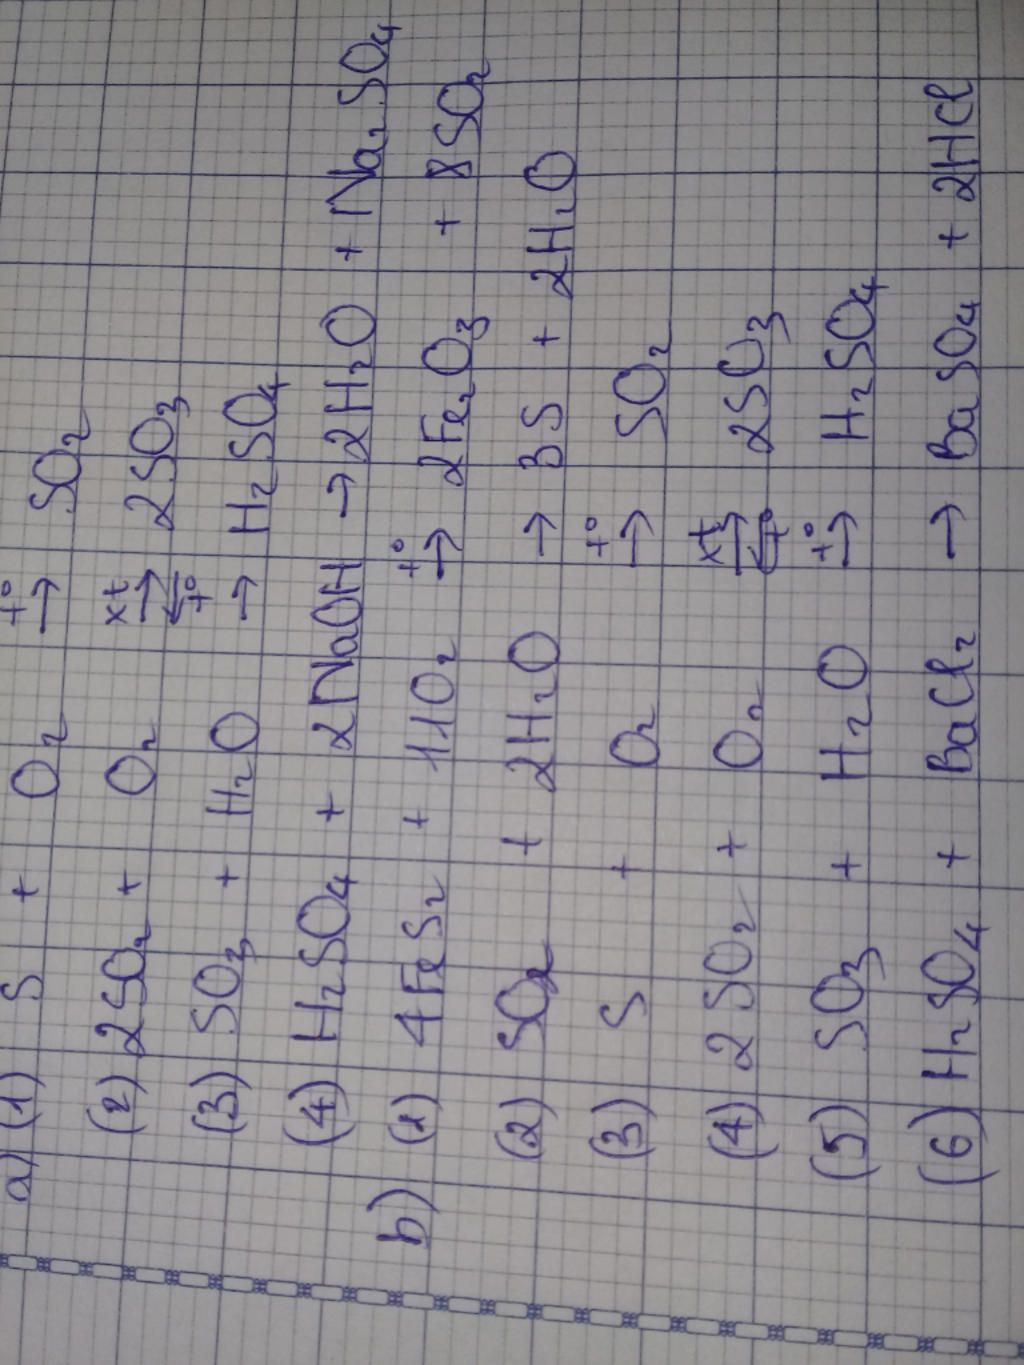 a) (1) S + O₂ →t° SO₂
(2) 2SO₂ + O₂ ⇌xt t° 2SO₃
(3) SO₃ + H₂O → H₂SO₄
(4) H₂SO₄ + 2NaOH → 2H₂O + Na₂SO₄
b) (1) 4FeS₂ + 11O₂ →t° 2Fe₂O₃ + 8SO₂
(2) SO₂ + 2H₂O → 3S + 2H₂O
(3) S + O₂ →t° SO₂
(4) 2SO₂ + O₂ ⇌xt t° 2SO₃
(5) SO₃ + H₂O →t° H₂SO₄
(6) H₂SO₄ + BaCl₂ → BaSO₄ + 2HCl